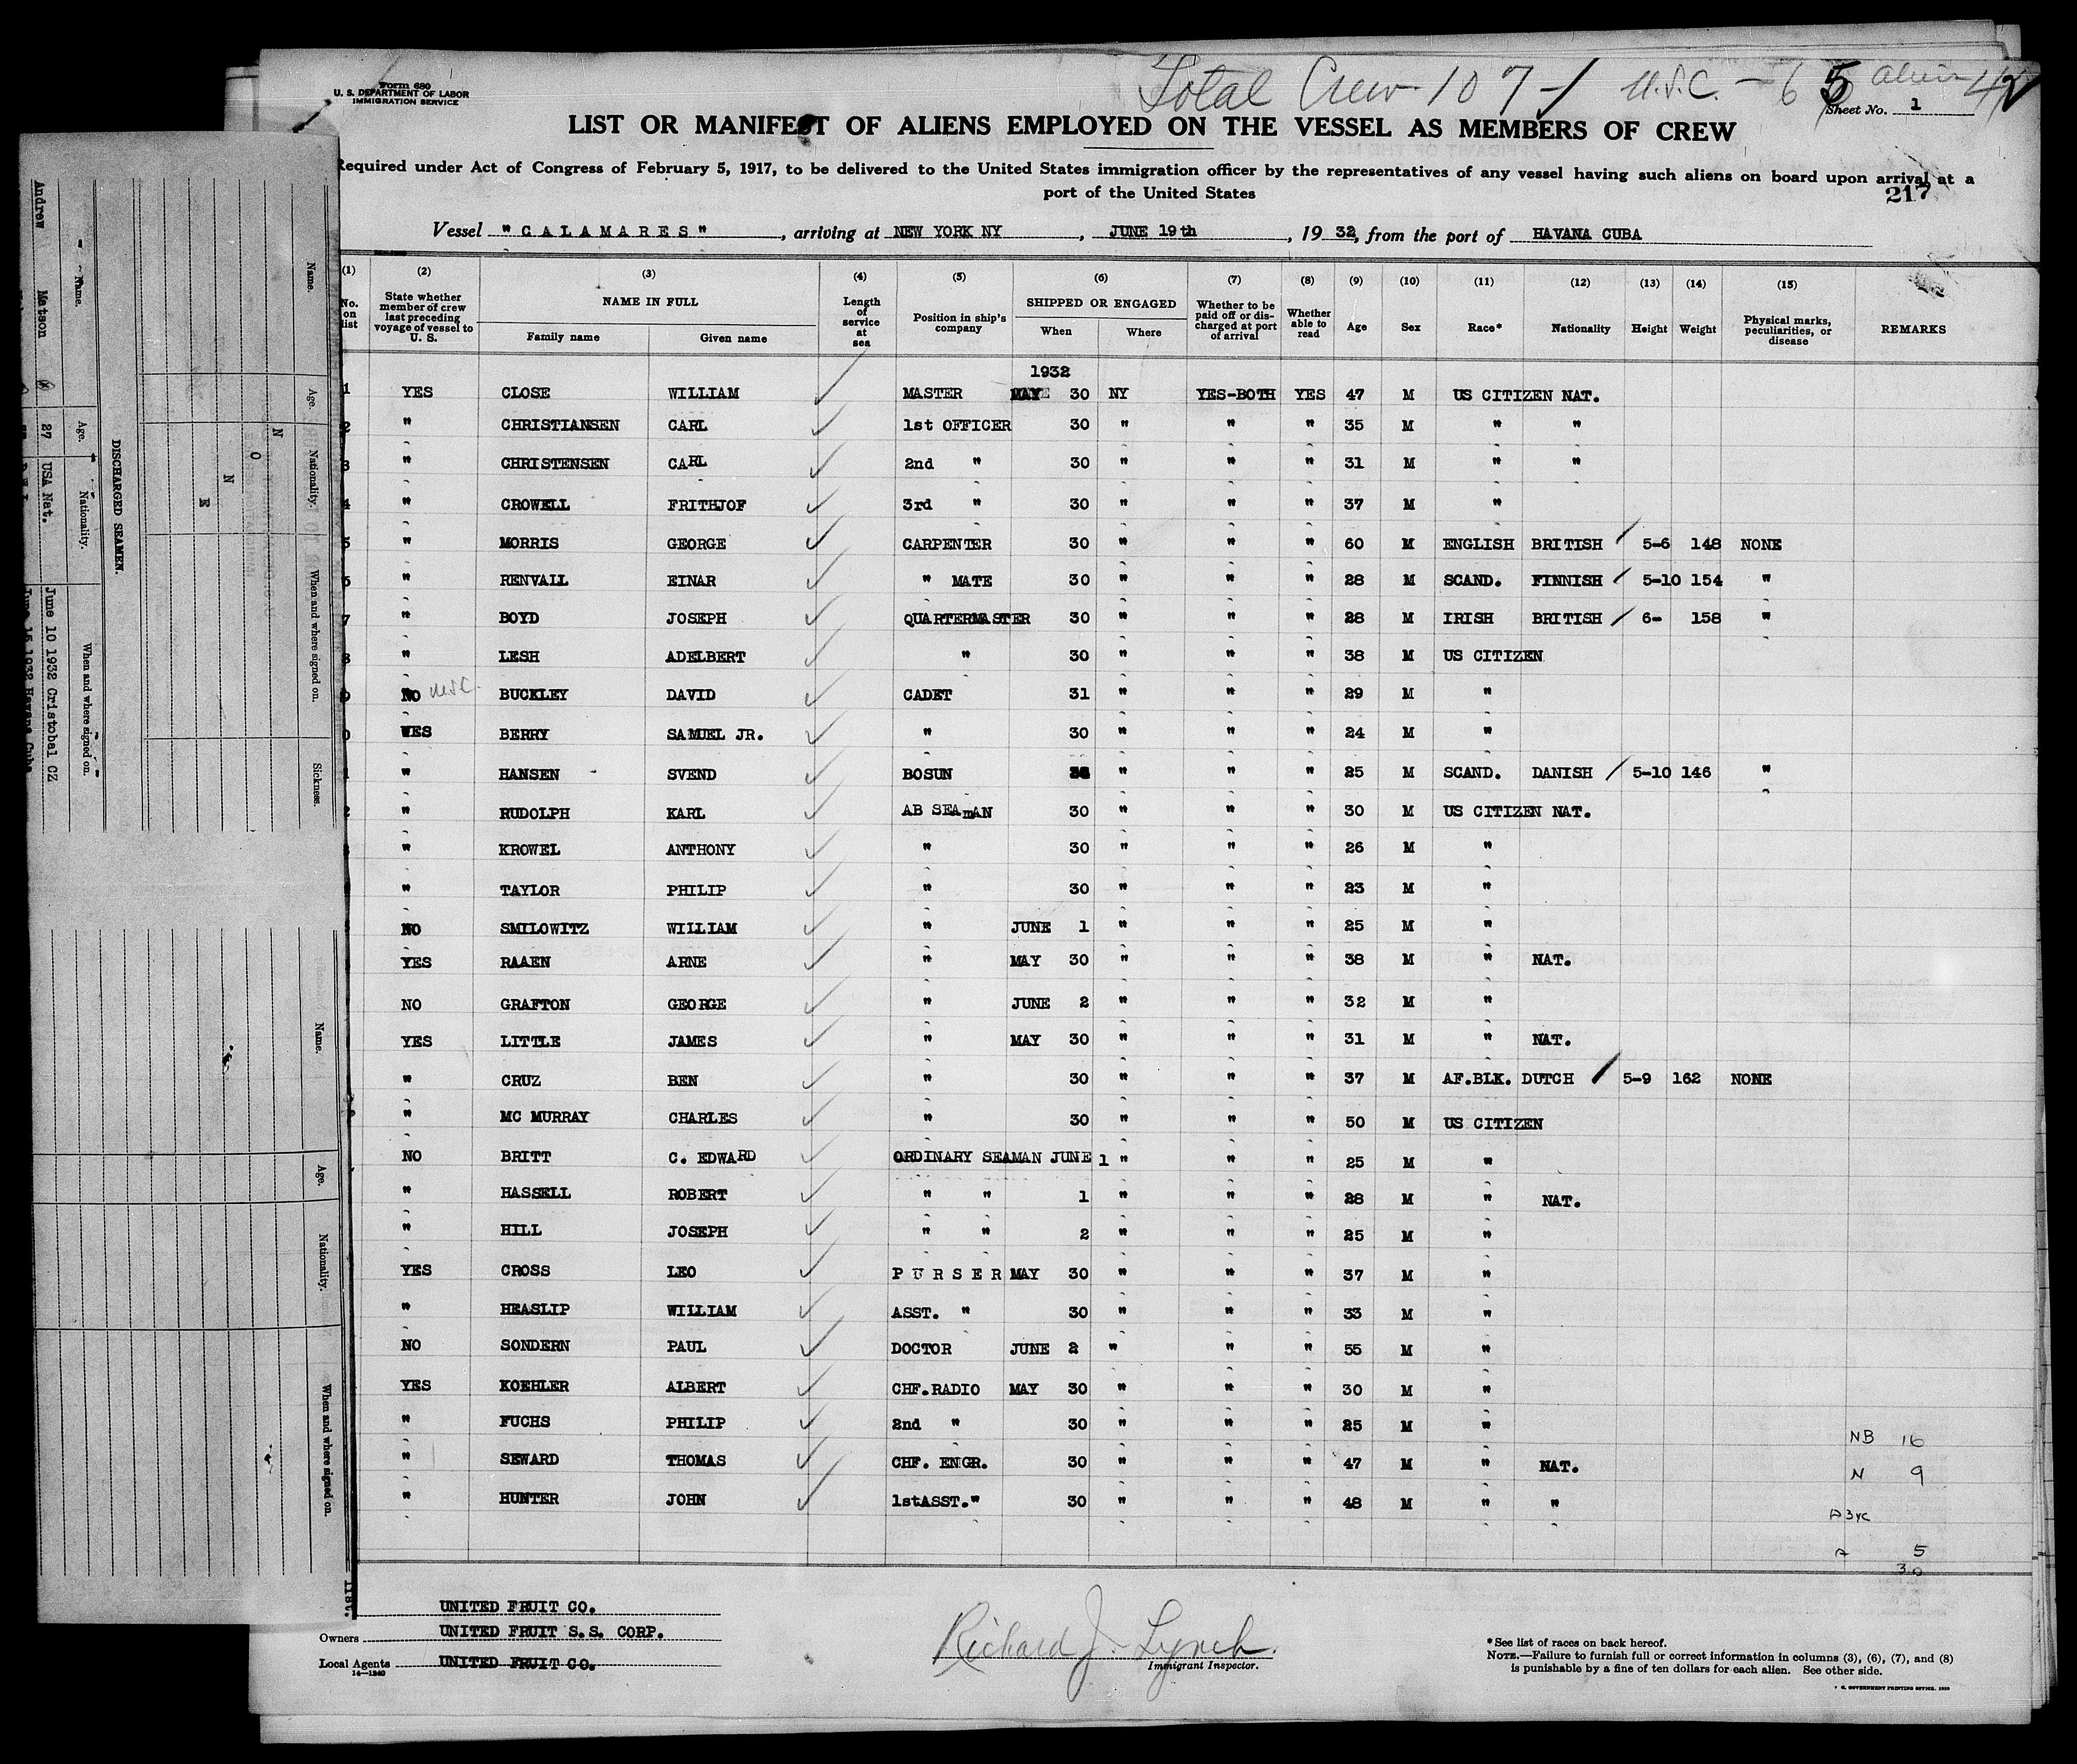 Total Crew 107 U.S.C. - 65 Alien 42
Form 680
U. S. DEPARTMENT OF LABOR
IMMIGRATION SERVICE
Sheet No. 1
LIST OR MANIFEST OF ALIENS EMPLOYED ON THE VESSEL AS MEMBERS OF CREW
Required under Act of Congress of February 5, 1917, to be delivered to the United States immigration officer by the representatives of any vessel having such aliens on board upon arrival at a
port of the United States
217
Vessel "CALAMARES", arriving at NEW YORK NY, JUNE 19th, 1932, from the port of HAVANA CUBA
(1) (2) (3) (4) (5) (6) (7) (8) (9) (10) (11) (12) (13) (14) (15)
No. on list State whether member of crew last preceding voyage of vessel to U. S. NAME IN FULL Family name Given name Length of service at sea Position in ship's company SHIPPED OR ENGAGED When Where Whether to be paid off or discharged at port of arrival Whether able to read Age Sex Race* Nationality Height Weight Physical marks, peculiarities, or disease REMARKS
1932
1 YES CLOSE WILLIAM MASTER MAY 30 NY YES-BOTH YES 47 M US CITIZEN NAT.
2 " CHRISTIANSEN CARL 1st OFFICER 30 " " " 35 M " "
3 " CHRISTENSEN CARL 2nd " 30 " " " 31 M " "
4 " CROWELL FRITHJOF 3rd " 30 " " " 37 M "
5 " MORRIS GEORGE CARPENTER 30 " " " 60 M ENGLISH BRITISH 5-6 148 NONE
6 " RENVALL EINAR " MATE 30 " " " 28 M SCAND. FINNISH 5-10 154 "
7 " BOYD JOSEPH QUARTERMASTER 30 " " " 28 M IRISH BRITISH 6- 158 "
8 " LESH ADELBERT " 30 " " " 38 M US CITIZEN
9 NO USC BUCKLEY DAVID CADET 31 " " " 29 M "
0 YES BERRY SAMUEL JR. " 30 " " " 24 M "
1 " HANSEN SVEND BOSUN " " " 25 M SCAND. DANISH 5-10 146 "
2 " RUDOLPH KARL AB SEAmAN 30 " " " 30 M US CITIZEN NAT.
" KROWEL ANTHONY " 30 " " " 26 M "
" TAYLOR PHILIP " 30 " " " 23 M "
NO SMILOWITZ WILLIAM " JUNE 1 " " " 25 M "
YES RAAEN ARNE " MAY 30 " " " 38 M " NAT.
NO GRAFTON GEORGE " JUNE 2 " " " 32 M "
YES LITTLE JAMES " MAY 30 " " " 31 M " NAT.
" CRUZ BEN " 30 " " " 37 M AF.BLK. DUTCH 5-9 162 NONE
" MC MURRAY CHARLES " 30 " " " 50 M US CITIZEN
NO BRITT C. EDWARD ORDINARY SEAMAN JUNE 1 " " " 25 M "
" HASSELL ROBERT " " 1 " " " 28 M " NAT.
" HILL JOSEPH " " 2 " " " 25 M "
YES CROSS LEO PURSER MAY 30 " " " 37 M "
" HEASLIP WILLIAM ASST. " 30 " " " 33 M "
NO SONDERN PAUL DOCTOR JUNE 2 " " " 55 M "
YES KOEHLER ALBERT CHF.RADIO MAY 30 " " " 30 M "
" FUCHS PHILIP 2nd " 30 " " " 25 M "
NB 16
" SEWARD THOMAS CHF. ENGR. 30 " " " 47 M " NAT.
N 9
" HUNTER JOHN 1stASST." 30 " " " 48 M " "
A 5
30
UNITED FRUIT CO.
Owners UNITED FRUIT S.S. CORP.
Local Agents UNITED FRUIT CO.
14—1240
Richard J. Lynch
Immigrant Inspector.
*See list of races on back hereof.
NOTE.—Failure to furnish full or correct information in columns (3), (6), (7), and (8)
is punishable by a fine of ten dollars for each alien. See other side.
U. S. GOVERNMENT PRINTING OFFICE. 1930
Name. Age. Nationality. When and where signed on. Sickness.
N O N E
DISCHARGED SEAMEN.
Name. Age. Nationality. When and where signed on.
Andrew Matson 27 USA Nat. June 10 1932 Cristobal CZ
June 15 1932 Havana Cuba
Name. Age. Nationality. When and where signed on.